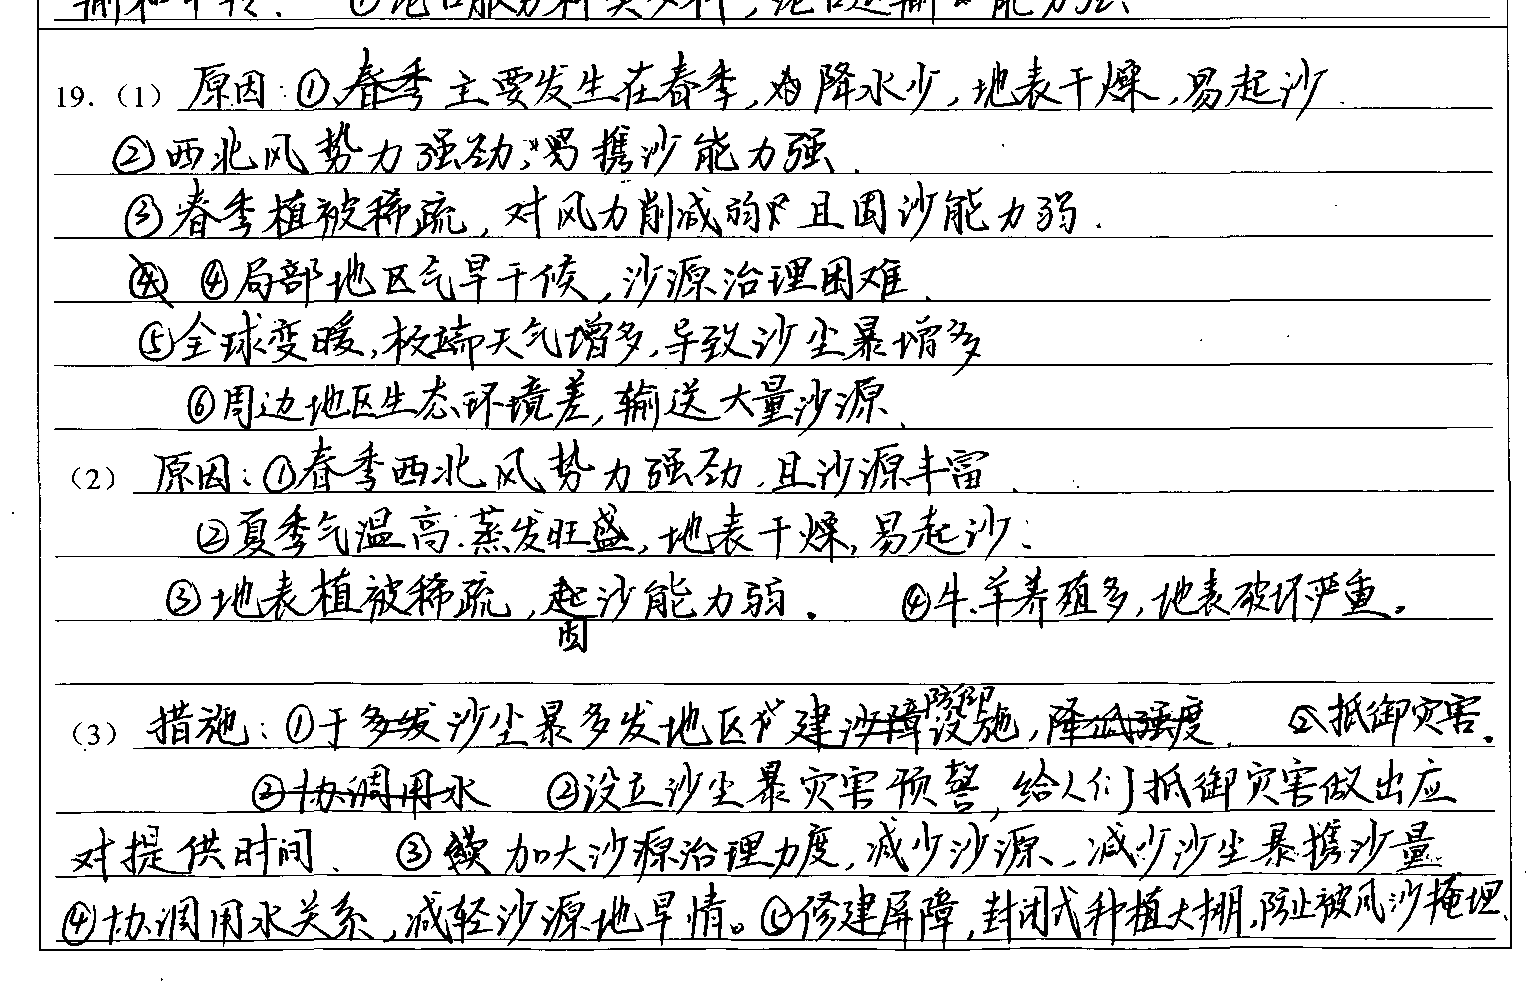 19.（1） 原因：①主要发生在春季，降水少，地表干燥，易起沙
②西北风势力强劲，携沙能力强.
③春季植被稀疏，对风力削减弱 且固沙能力弱.
④局部地区气旱干候，沙源治理困难.
⑤全球变暖，极端天气增多，导致沙尘暴增多
⑥周边地区生态环境差，输送大量沙源.
（2） 原因：①春季西北风势力强劲，且沙源丰富.
②夏季气温高.蒸发旺盛，地表干燥，易起沙.
③地表植被稀疏，固沙能力弱. ④牛.羊养殖多，地表破坏严重。
（3） 措施：①于沙尘暴多发地区建防御设施， 抵御灾害.
②设立沙尘暴灾害预警，给人们抵御灾害做出应
对提供时间. ③加大沙源治理力度，减少沙源，减少沙尘暴携沙量
④协调用水关系，减轻沙源地旱情。⑤修建屏障，封闭式种植大棚，防止被风沙掩埋.